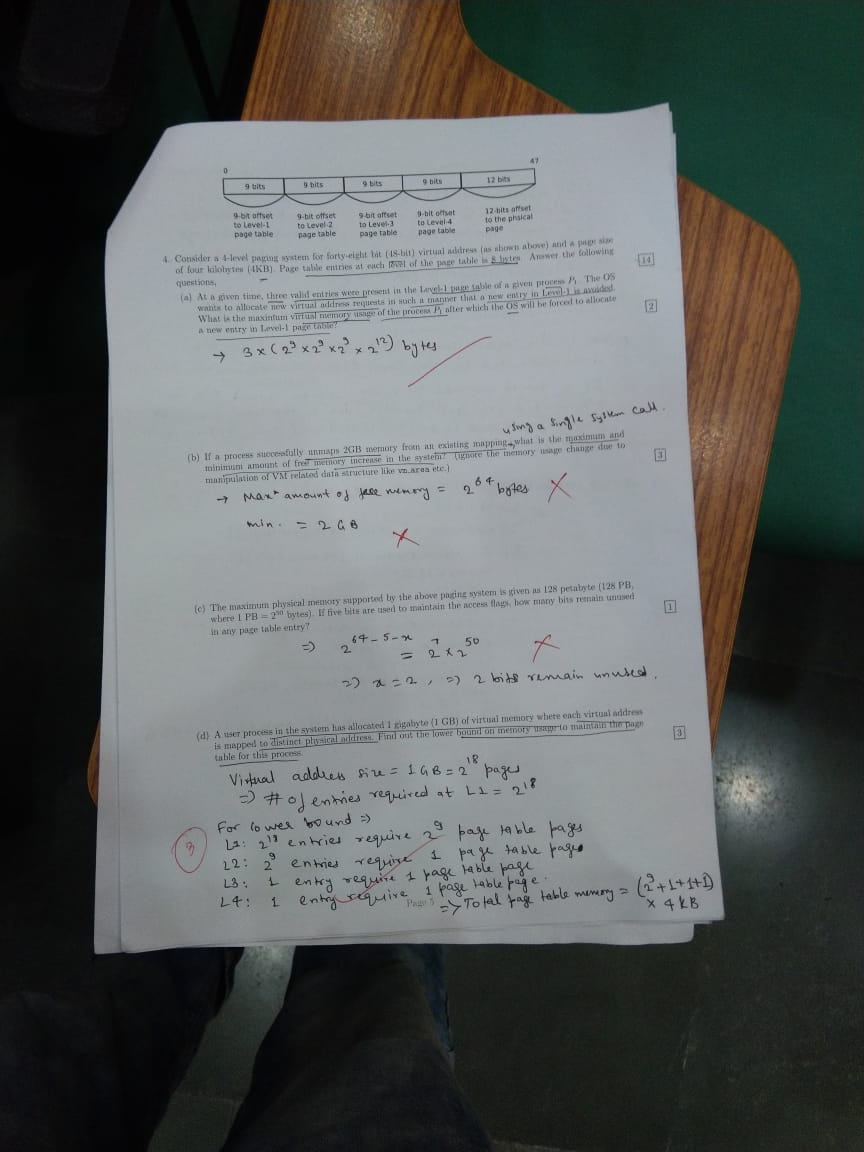 0 47
9 bits 9 bits 9 bits 9 bits 12 bits
9-bit offset 9-bit offset 9-bit offset 9-bit offset 12-bits offset
to Level-1 to Level-2 to Level-3 to Level-4 to the phsical
page table page table page table page table page
4. Consider a 4-level paging system for forty-eight bit (48-bit) virtual address (as shown above) and a page size
of four kilobytes (4KB). Page table entries at each level of the page table is 8 bytes. Answer the following
questions, [14]
(a) At a given time, three valid entries were present in the Level-1 page table of a given process P1. The OS
wants to allocate new virtual address requests in such a manner that a new entry in Level-1 is avoided.
What is the maximum virtual memory usage of the process P1 after which the OS will be forced to allocate [2]
a new entry in Level-1 page table?
→ 3 × (2⁹ × 2⁹ × 2⁹ × 2¹²) bytes
using a single system call.
(b) If a process successfully unmaps 2GB memory from an existing mapping, what is the maximum and
minimum amount of free memory increase in the system? (ignore the memory usage change due to [3]
manipulation of VM related data structure like vm_area etc.)
→ Maxm amount of free memory = 2⁶⁴ bytes ×
min. = 2 GB ×
(c) The maximum physical memory supported by the above paging system is given as 128 petabyte (128 PB,
where 1 PB = 2⁵⁰ bytes). If five bits are used to maintain the access flags, how many bits remain unused [1]
in any page table entry?
⇒ 2⁶⁴⁻⁵⁻ˣ = 2⁷ × 2⁵⁰ ×
⇒ x = 2, ⇒ 2 bits remain unused.
(d) A user process in the system has allocated 1 gigabyte (1 GB) of virtual memory where each virtual address
is mapped to distinct physical address. Find out the lower bound on memory usage to maintain the page [3]
table for this process.
Virtual address size = 1 GB = 2¹⁸ pages
⇒ # of entries required at L1 = 2¹⁸
For lower bound ⇒
3
L1: 2¹⁸ entries require 2⁹ page table pages
L2: 2⁹ entries require 1 page table pages
L3: 1 entry require 1 page table page
L4: 1 entry require 1 page table page.
Page 5
⇒ Total page table memory = (2⁹+1+1+1)
× 4 KB